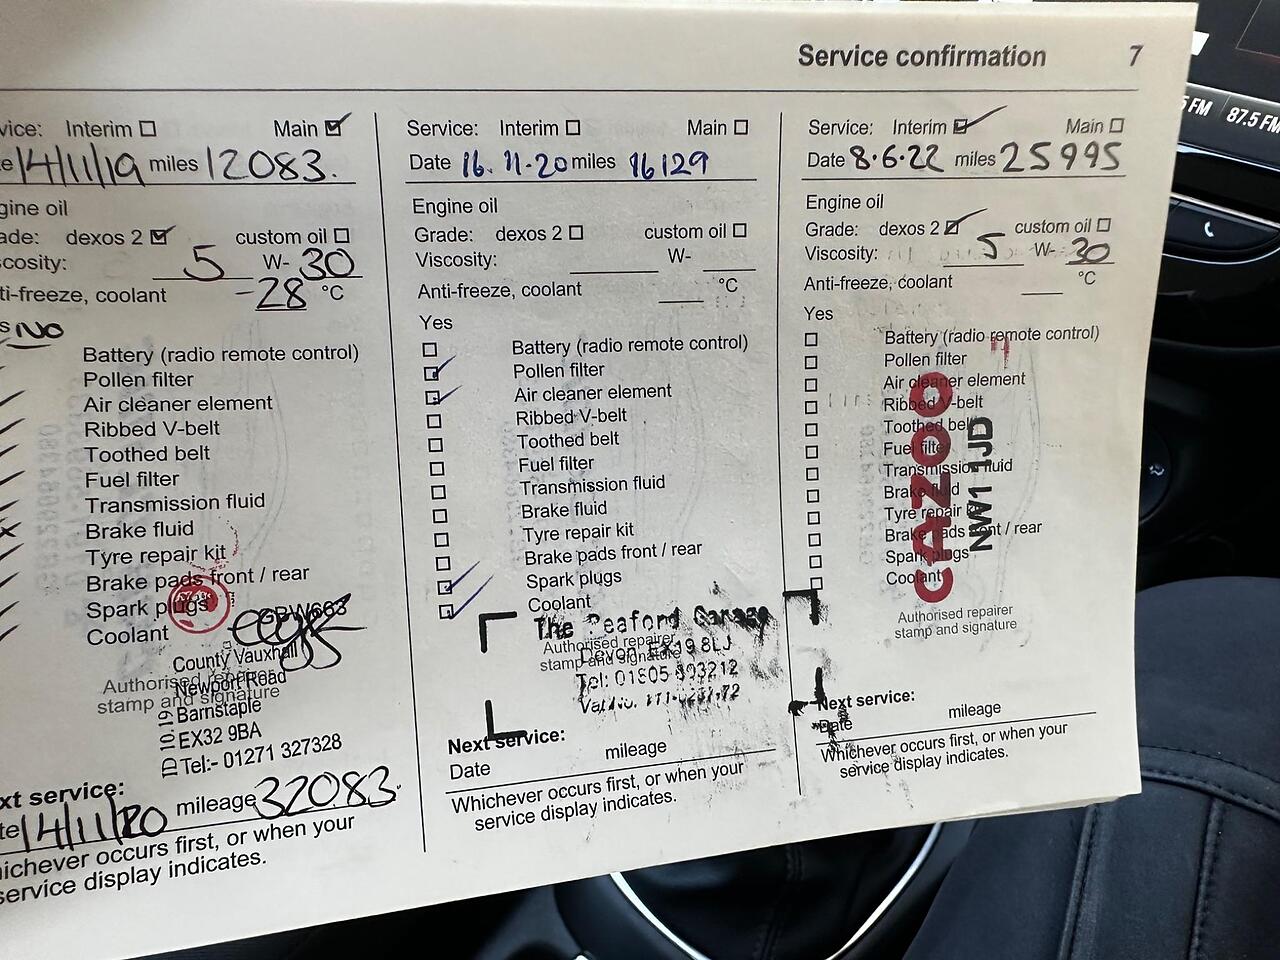 Service confirmation 7
vice: Interim Main
14/11/19 miles 12083.
gine oil
ade: dexos 2 custom oil
scosity: 5 W- 30
ti-freeze, coolant -28 °C
s NO
Battery (radio remote control)
Pollen filter
Air cleaner element
Ribbed V-belt
Toothed belt
Fuel filter
Transmission fluid
Brake fluid
Tyre repair kit
Brake pads front / rear
Spark plugs
Coolant
Authorised repairer
stamp and signature
County Vauxhall
Newport Road
Barnstaple
EX32 9BA
Tel:- 01271 327328
xt service:
te 14/11/20 mileage 32083.
hichever occurs first, or when your
service display indicates.
Service: Interim Main
Date 16.11.20 miles 16129
Engine oil
Grade: dexos 2 custom oil
Viscosity: W-
Anti-freeze, coolant °C
Yes
Battery (radio remote control)
Pollen filter
Air cleaner element
Ribbed V-belt
Toothed belt
Fuel filter
Transmission fluid
Brake fluid
Tyre repair kit
Brake pads front / rear
Spark plugs
Coolant
The Garage
Authorised repairer
stamp and signature
Devon EX19 8LJ
Tel: 01805
Next service:
Date mileage
Whichever occurs first, or when your
service display indicates.
Service: Interim Main
Date 8.6.22 miles 25995
Engine oil
Grade: dexos 2 custom oil
Viscosity: 5 W- 30
Anti-freeze, coolant °C
Yes
Battery (radio remote control)
Pollen filter
Air cleaner element
Ribbed V-belt
Toothed belt
Fuel filter
Transmission fluid
Brake fluid
Tyre repair kit
Brake pads front / rear
Spark plugs
Coolant
cazoo
NW1 1JD
Authorised repairer
stamp and signature
Next service:
Date mileage
Whichever occurs first, or when your
service display indicates.
5 FM 87.5 FM